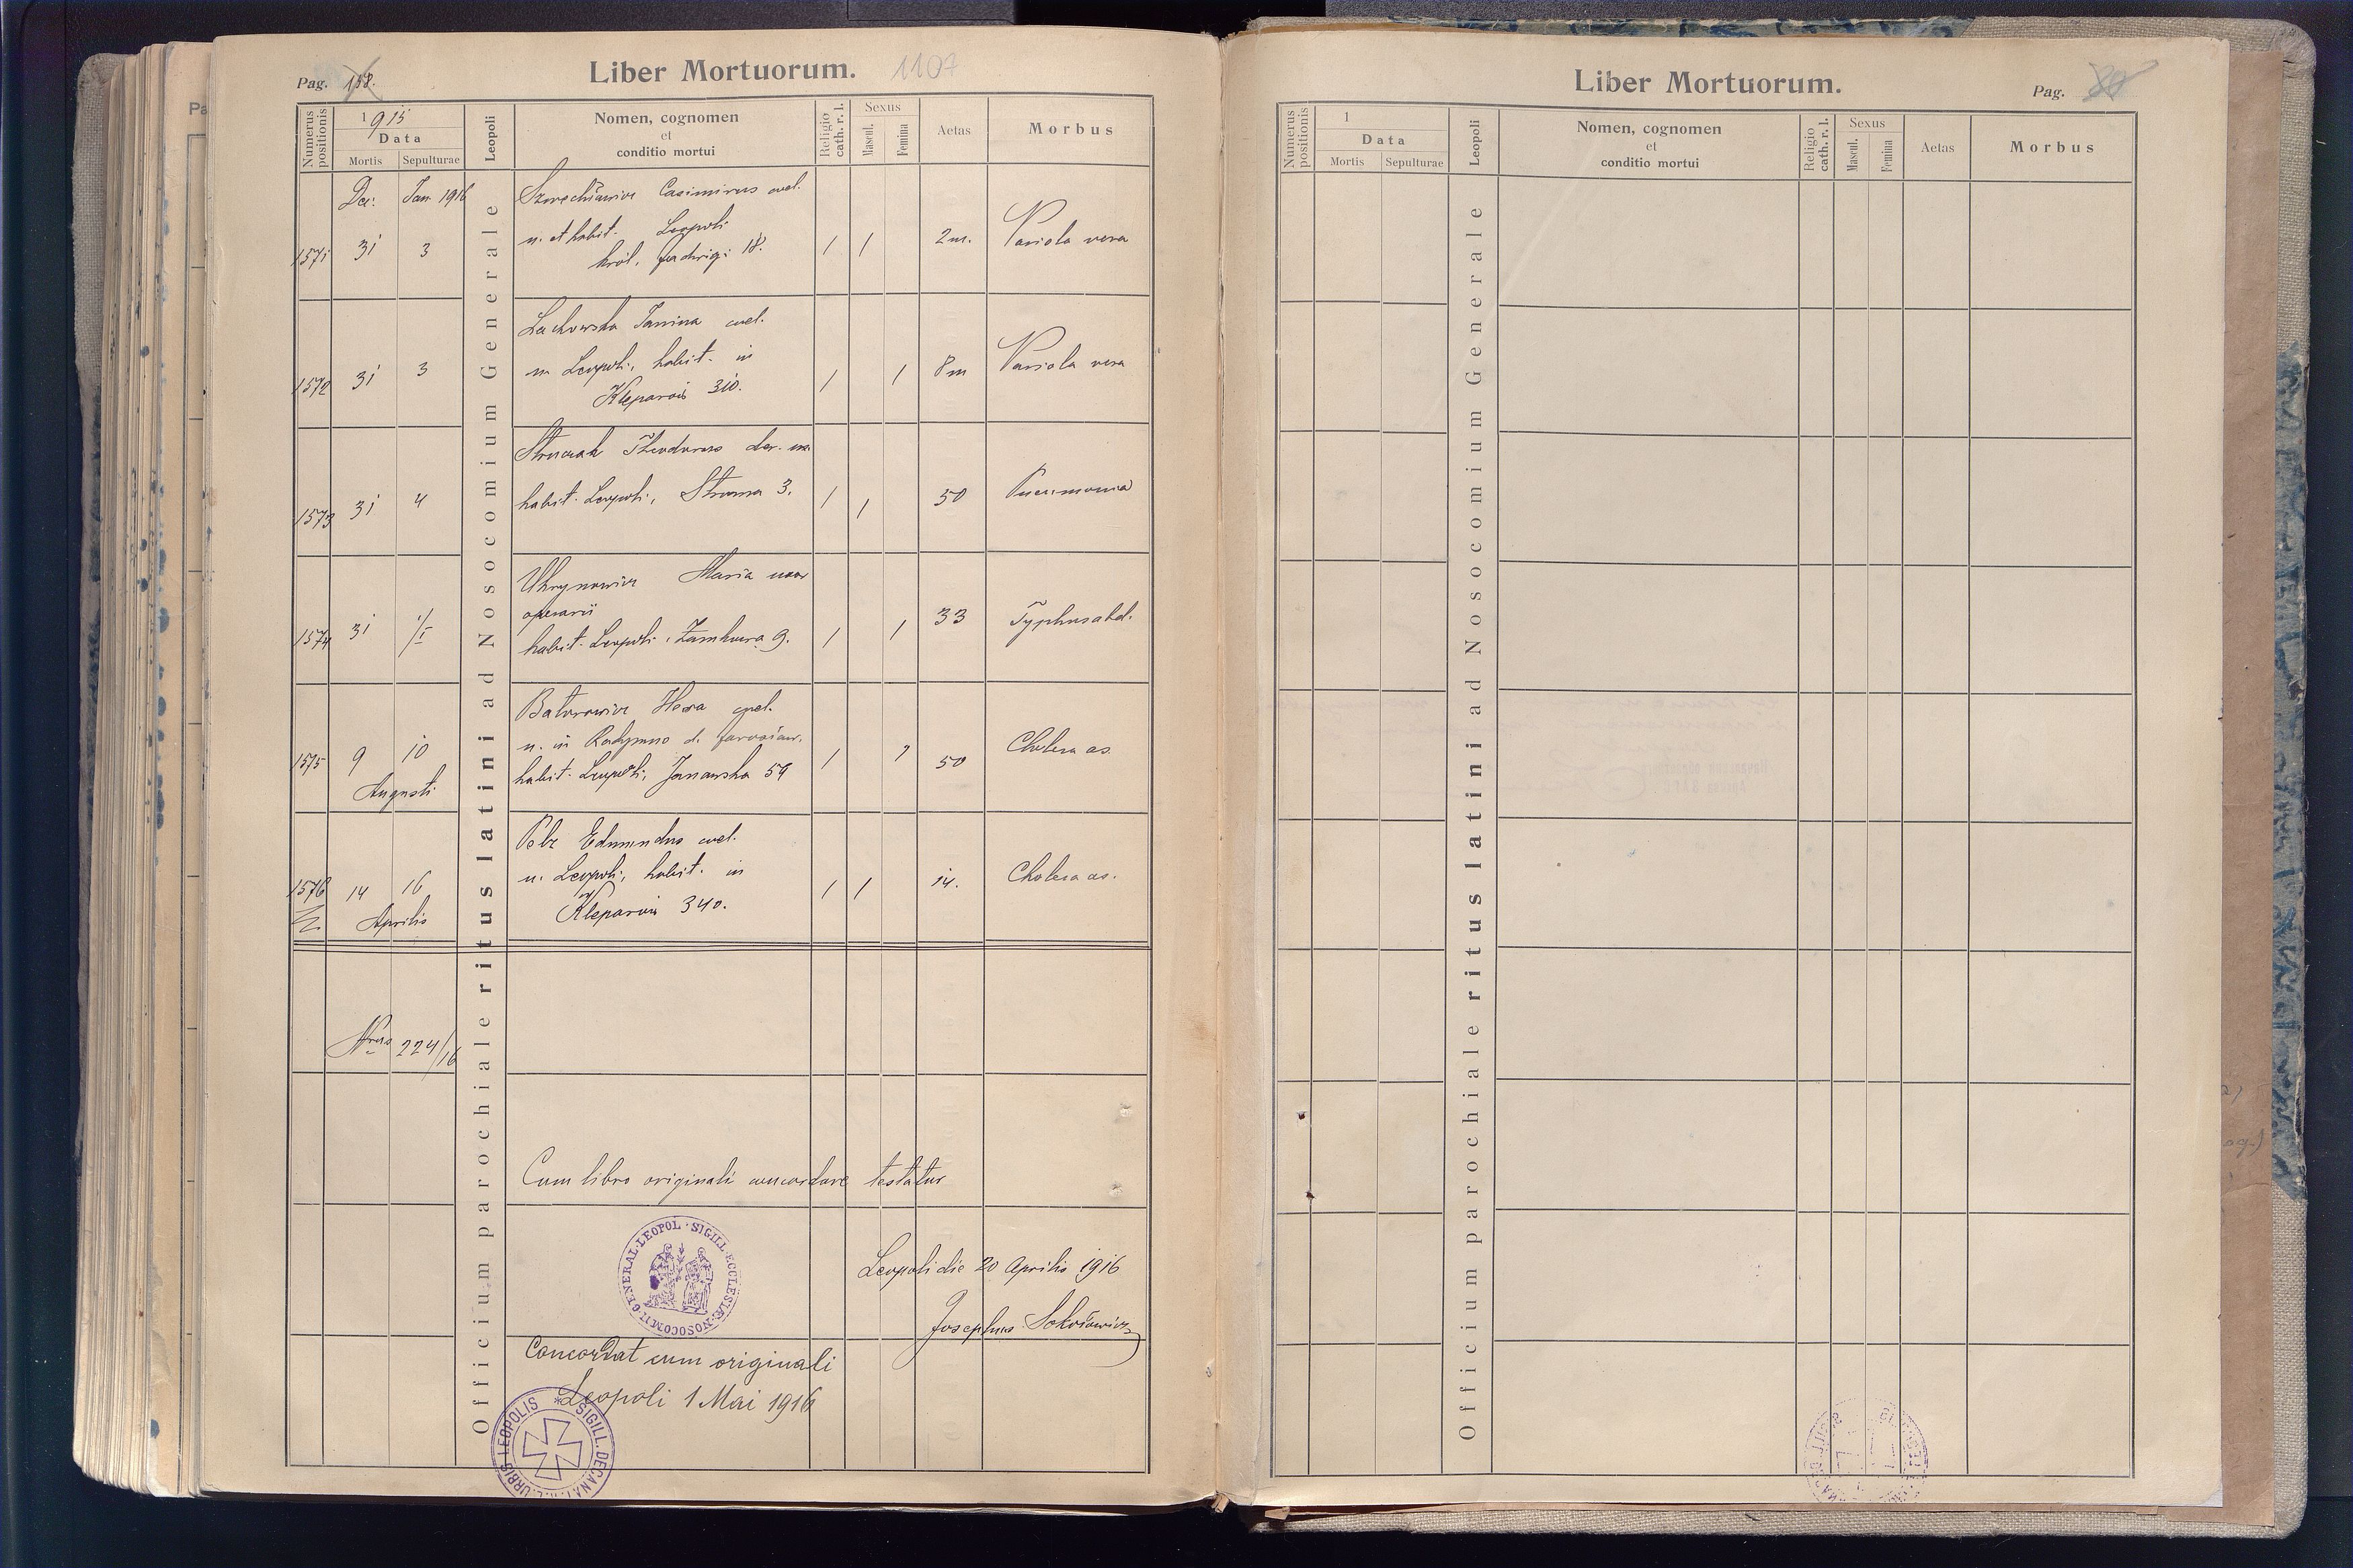 Liber Mortuorum. 1107
Pag. 158.
Numerus positionis
1915
Data
Mortis Sepulturae
Leopoli
Nomen, cognomen
et
conditio mortui
Religio cath. r. l.
Sexus
Mascul. Femina
Aetas
Morbus
Officium parochiale ritus latini ad Nosocomium Generale
Dec: Jan 1916
Casimirus cael.
n. et habit. Leopoli
król. Jadwigi 18.
1571 31 3 / / 2 m. Variola vera
Lachowska Janina cael.
n. Leopoli, habit. in
Kleparów 310.
1572 31 3 / / 8 m Variola vera
Theodorus
habit. Leopoli, Stroma 3.
1573 31 4 / / 50 Pneumonia
Uhrynowicz Maria uxor
operarii
habit. Leopoli, 9.
1574 31 1/I / / 33 Typhus abd.
Batorowicz cael.
n. in Radymno d. Jarosław.
habit. Leopoli, Janowska 59
1575 9 10 / 50 Cholera as.
Augusti
Pelz Edmundus cael.
n. Leopoli, habit. in
Kleparów 340.
1576 14 16 / / 14. Cholera as.
Aprilis
Nrus 224/16
Cum libro originali concordare testatur
SIGILL. ECCLESIÆ NOSOCOMII GENERAL. LEOPOL.
Leopoli die 20 Aprilis 1916
Josephus
Concordat cum originali
Leopoli 1 Mai 1916
SIGILL. DECANAT. R. L. URBIS LEOPOLIS
Liber Mortuorum.
Pag.
Numerus positionis
1
Data
Mortis Sepulturae
Leopoli
Nomen, cognomen
et
conditio mortui
Religio cath. r. l.
Sexus
Mascul. Femina
Aetas
Morbus
Officium parochiale ritus latini ad Nosocomium Generale